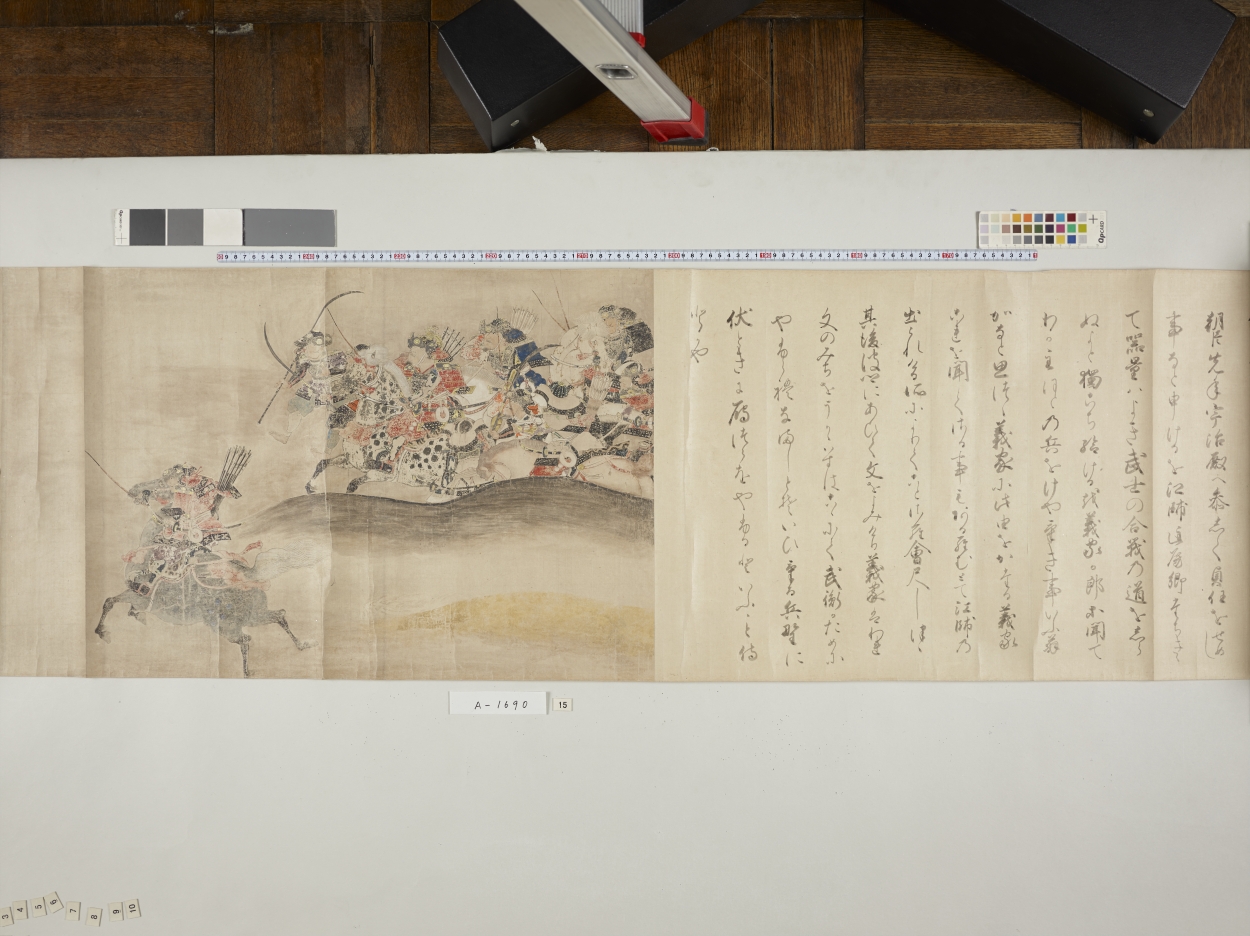 朝臣先年宇治殿へ参して貞任をせめし
事なと申けるを江帥匡房卿たちきゝ
て器量はよき武士の合戦の道をしら
ぬよと獨こち給けるを義家の郎等聞て
わか主ほとの兵をけやけき事いふ翁
かなと思つゝ義家に此由をかたる義家
これを聞てさる事もあるらむとて江帥の
出られける所によりてことさら會尺しけり
其後彼卿にあひて文をよみけり義家はわれ
文のみちをうかゝはすはこゝにて武衡かために
やふられなましとそいひける兵野に
伏とき雁つらをやふるといふこと侍
とかや
A-1690
15
3
4
5
6
7
8
9
10